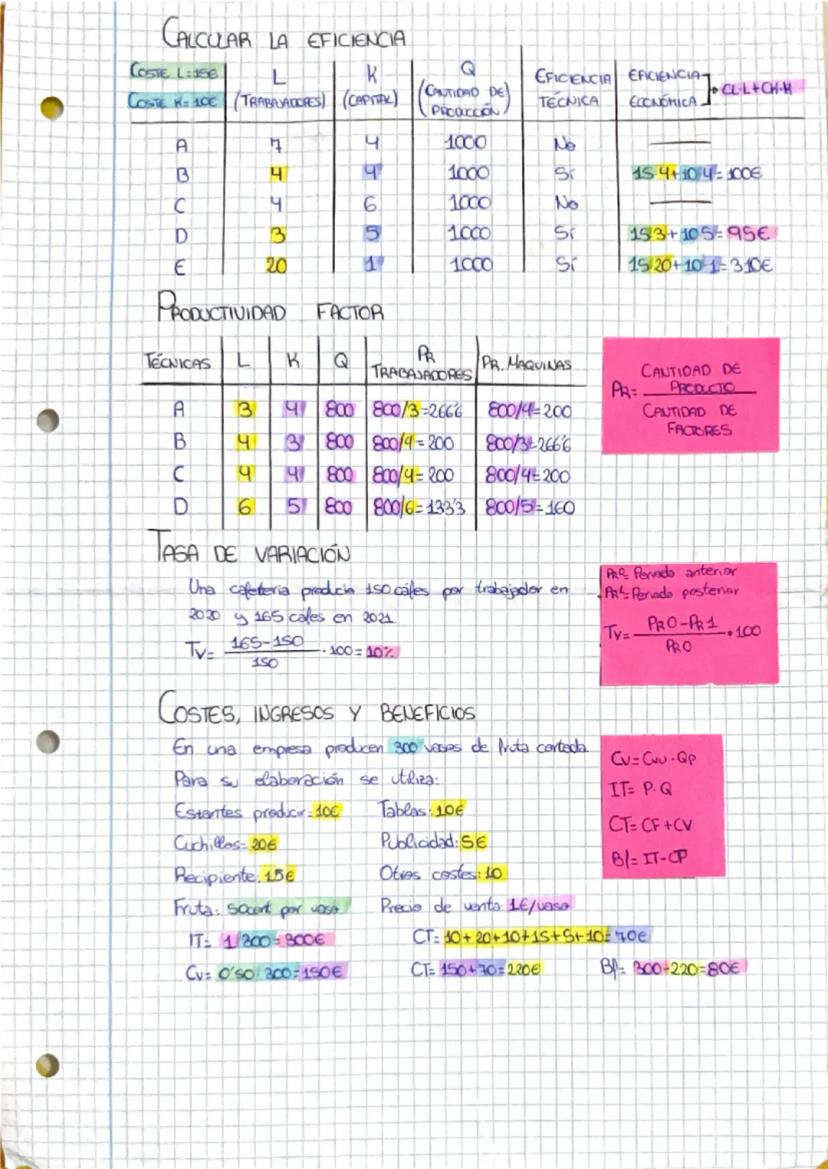 CALCULAR LA EFICIENCIA
COSTE L=15€ L K Q EFICIENCIA EFICIENCIA
COSTE K=10€ (TRABAJADORES) (CAPITAL) (CANTIDAD DE PRODUCCIÓN) TÉCNICA ECONÓMICA
A 7 4 1000 No ———
B 4 4 1000 Sí 15·4+10·4=100€
C 4 6 1000 No ———
D 3 5 1000 Sí 15·3+10·5=95€
E 20 1 1000 Sí 15·20+10·1=310€
PRODUCTIVIDAD FACTOR
TÉCNICAS L K Q PR TRABAJADORES PR. MAQUINAS
A 3 4 800 800/3=266'6 800/4=200
B 4 3 800 800/4=200 800/3=266'6
C 4 4 800 800/4=200 800/4=200
D 6 5 800 800/6=133'3 800/5=160
PR= CANTIDAD DE PRODUCTO
CANTIDAD DE FACTORES
TASA DE VARIACIÓN
Una cafetería producía 150 cáfes por trabajador en
2020 y 165 cafes en 2021
TV= 165-150
150 ·100=10%
PR0= Periodo anterior
PR1= Periodo posterior
TV= PR0-PR1
PR0 ·100
COSTES, INGRESOS Y BENEFICIOS
En una empresa producen 300 vasos de fruta cortada.
Para su elaboración se utiliza:
Estantes producir=10€ Tablas: 10€
Cuchillos= 20€ Publicidad: 5€
Recipiente: 15€ Otros costes: 10
Fruta: 50cent por vaso Precio de venta: 1€/vaso
IT= 1·300=300€ CT= 10+20+10+15+5+10=70€
CV= 0'50·300=150€ CT= 150+70=220€ B/= 300-220=80€
CV=CVU·QP
IT= P·Q
CT= CF+CV
B/= IT-CP